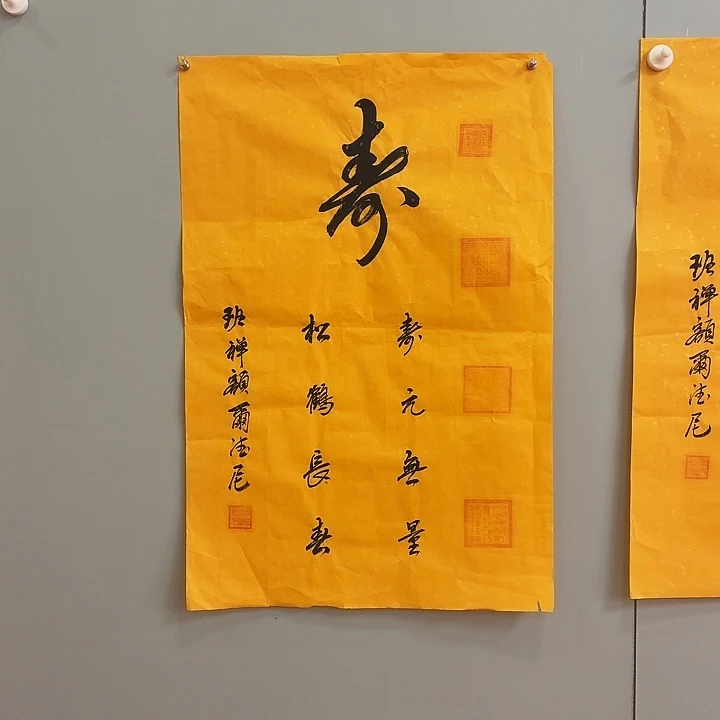 寿
寿元無量
松鶴長春
班禅額爾德尼
班禅額爾德尼